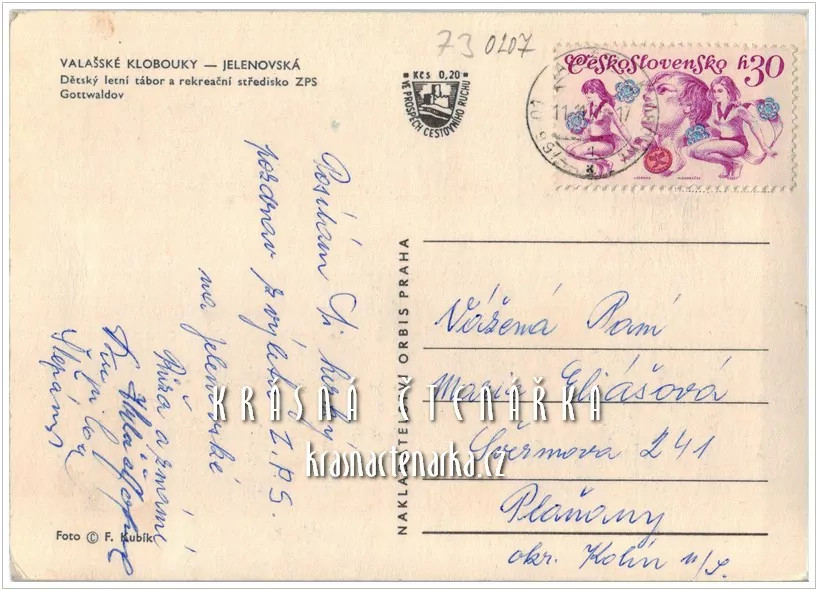 VALAŠSKÉ KLOBOUKY — JELENOVSKÁ
Dětský letní tábor a rekreační středisko ZPS
Gottwaldov
73 0207
Kčs 0,20
VE PROSPĚCH CESTOVNÍHO RUCHU
Československo h30
Posílám Ti hezký
pozdrav z výletu Z.P.S.
na jelenovské
Růža a známí
Štěpánů
NAKLADATELSTVÍ ORBIS PRAHA
Vážená Paní
Marie Eliášová
Švermova 241
Plaňany
okr. Kolín n/L.
KRÁSNÁ ČTENÁŘKA
krasnactenarka.cz
Foto © F. Kubík